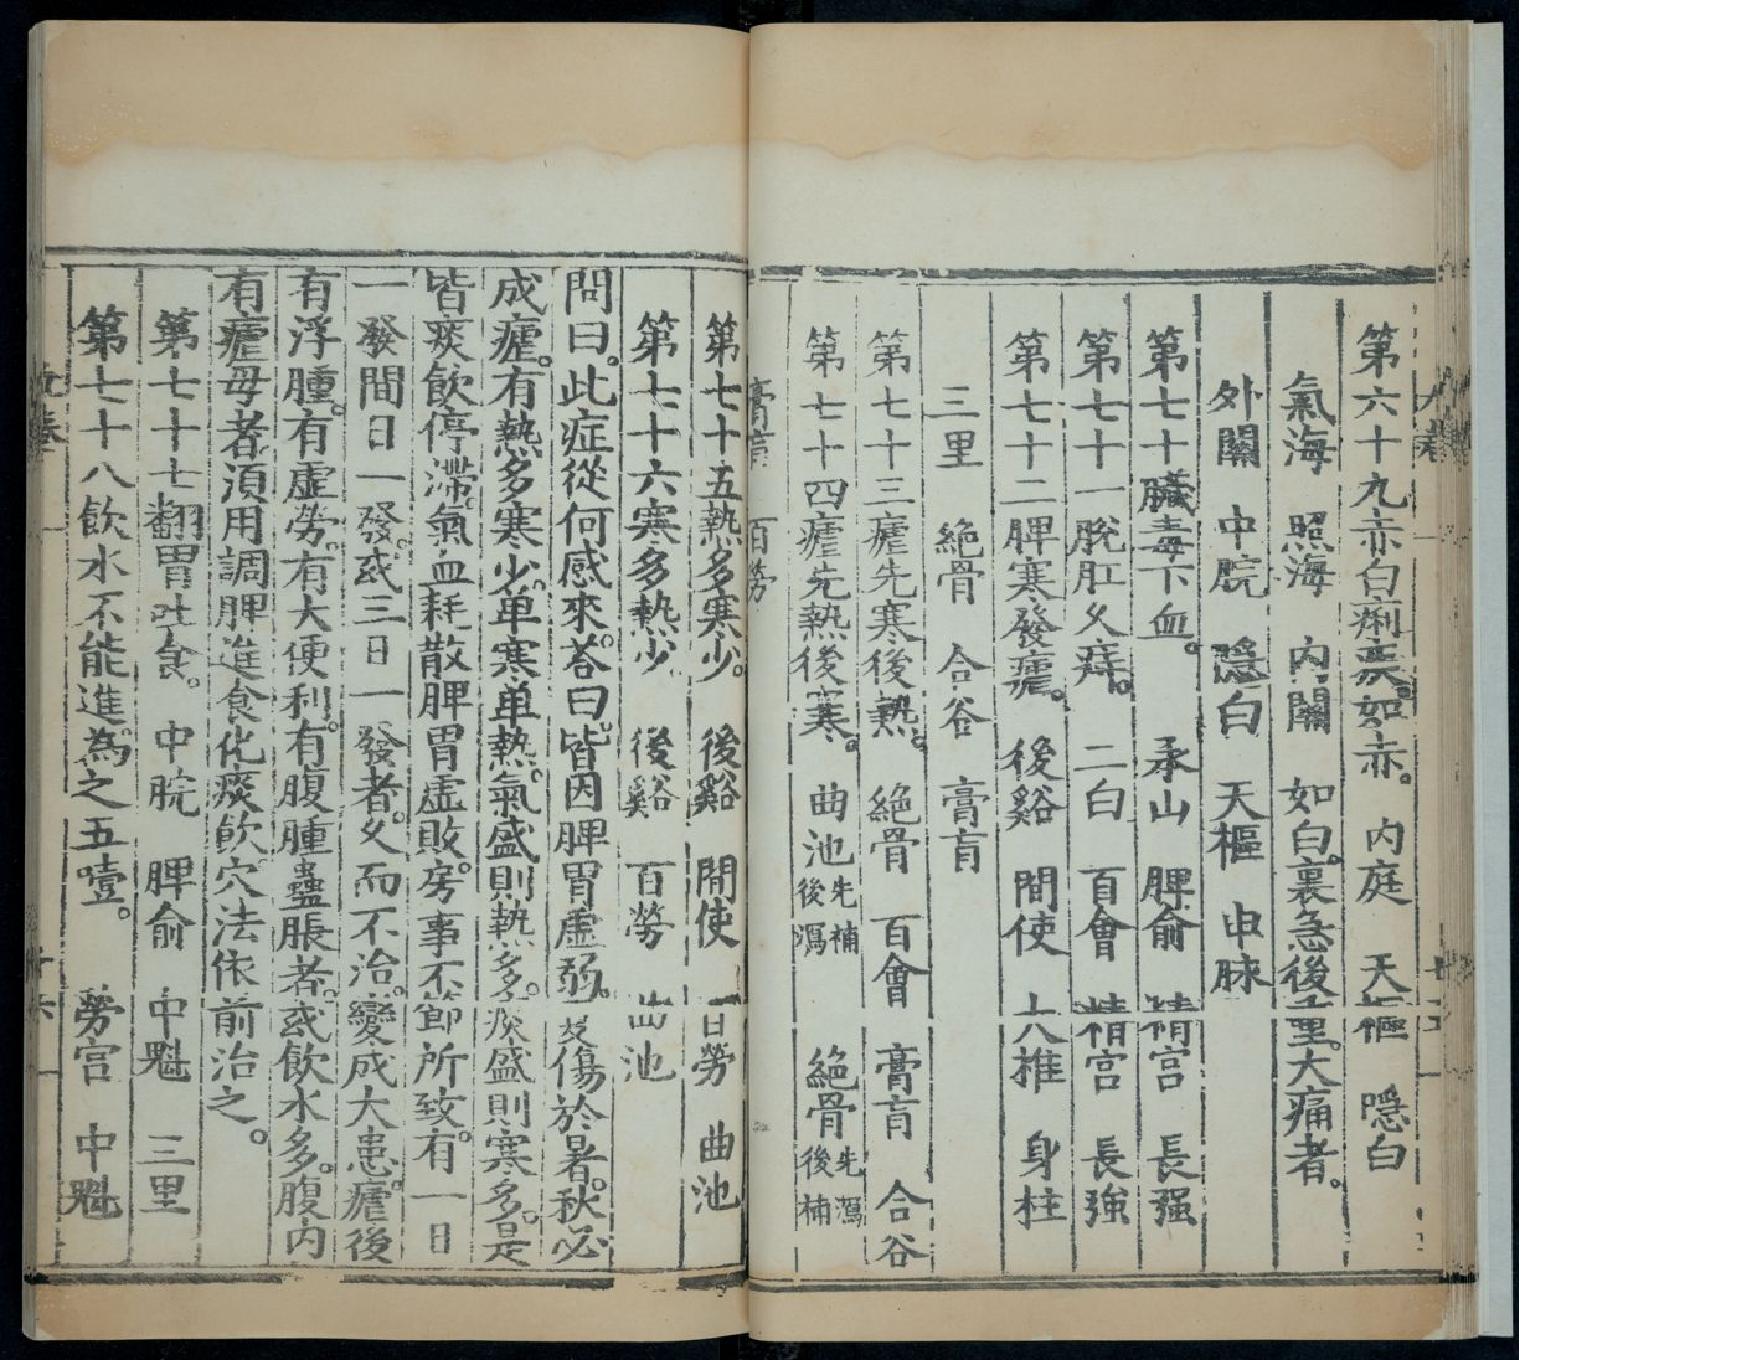 第六十九赤白痢疾。如赤。 内庭 天樞 隱白
氣海 照海 内關 如白。裏急後重。大痛者。
外關 中脘 隱白 天樞 申脉
第七十臟毒下血。 承山 脾俞 精宫 長强
第七十一脱肛久痔。 二白 百會 精宫 長強
第七十二脾寒發瘧。 後谿 間使 大椎 身柱
三里 絶骨 合谷 膏肓
第七十三瘧先寒後熱。 絶骨 百會 膏肓 合谷
第七十四瘧先熱後寒。 曲池先補後瀉 絶骨先瀉後補
膏肓 百勞
第七十五熱多寒少。 後谿 間使 百勞 曲池
第七十六寒多熱少 後谿 百勞 曲池
問曰。此症從何感來。荅曰。皆因脾胃虛弱。 傷於暑。秋必
成瘧。有熱多寒少。单寒单熱。氣盛則熱多。痰盛則寒多。是
皆痰飲停滯。氣血耗散脾胃虛敗。房事不節所致。有一日
一發間日一發。或三日一發者。久而不治。變成大患。瘧後
有浮腫。有虛勞。有大便利。有腹腫蠱脹者。或飲水多。腹内
有瘧母者。須用調脾進食化痰飲。穴法依前治之。
第七十七翻胃吐食。 中脘 脾俞 中魁 三里
第七十八飲水不能進。為之五噎。 勞宫 中魁